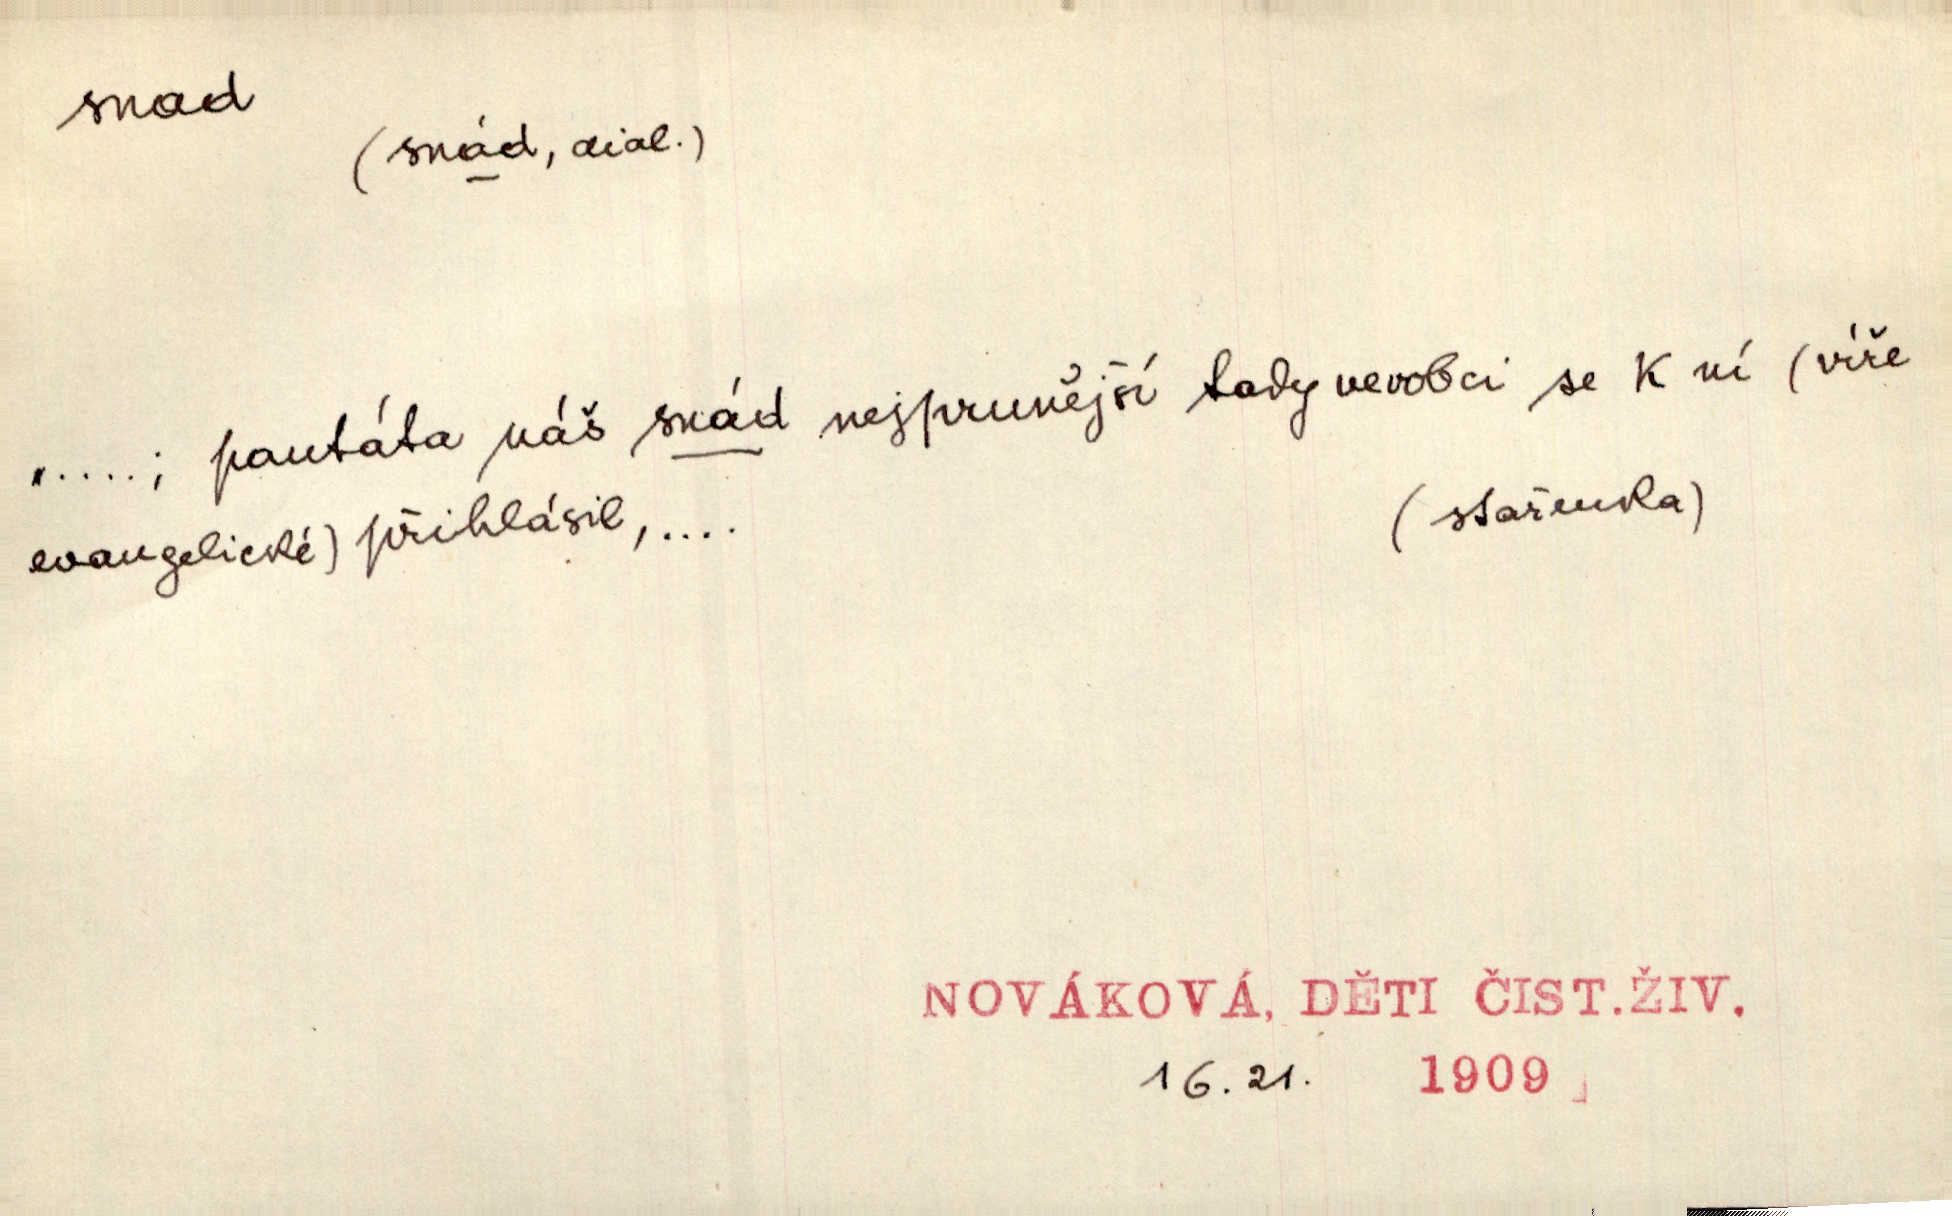 snad
(snád, dial.)
„....; pantáta náš snád nejprunější tady vevobci se k ní (víře
evangelické) přihlásil, ....
(stařenka)
NOVÁKOVÁ, DĚTI ČIST.ŽIV.
16.21. 1909